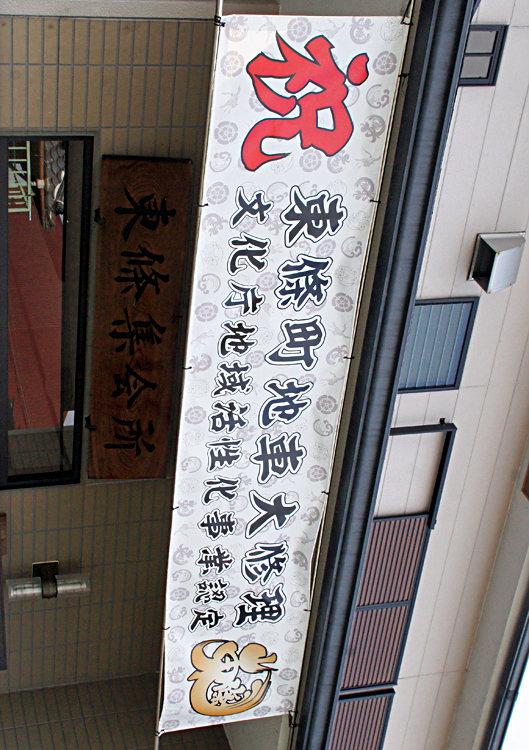 祝
東條町地車大修理
文化庁地域活性化事業認定
東條集会所